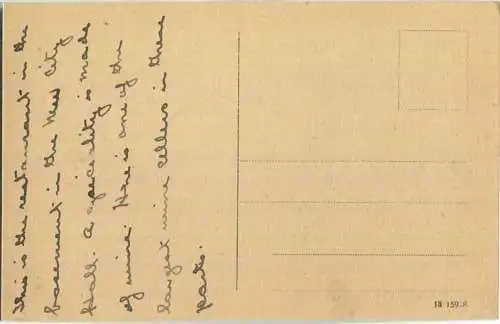 This is the restaurant in the
basement in the New City
Hall. A speciality is made
of wine. Here is one of the
largest wine cellers in these
parts.
18 159:8